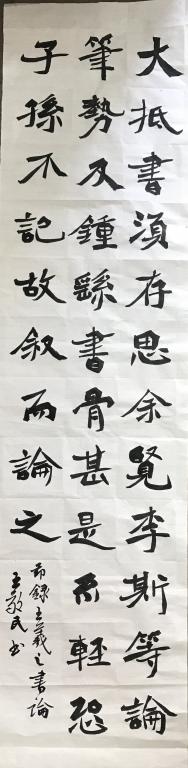 大抵書須存思余覽李斯等論
筆勢及鍾繇書骨甚是而輕恐
子孫不記故叙而論之
節錄王羲之書論
王敬民書